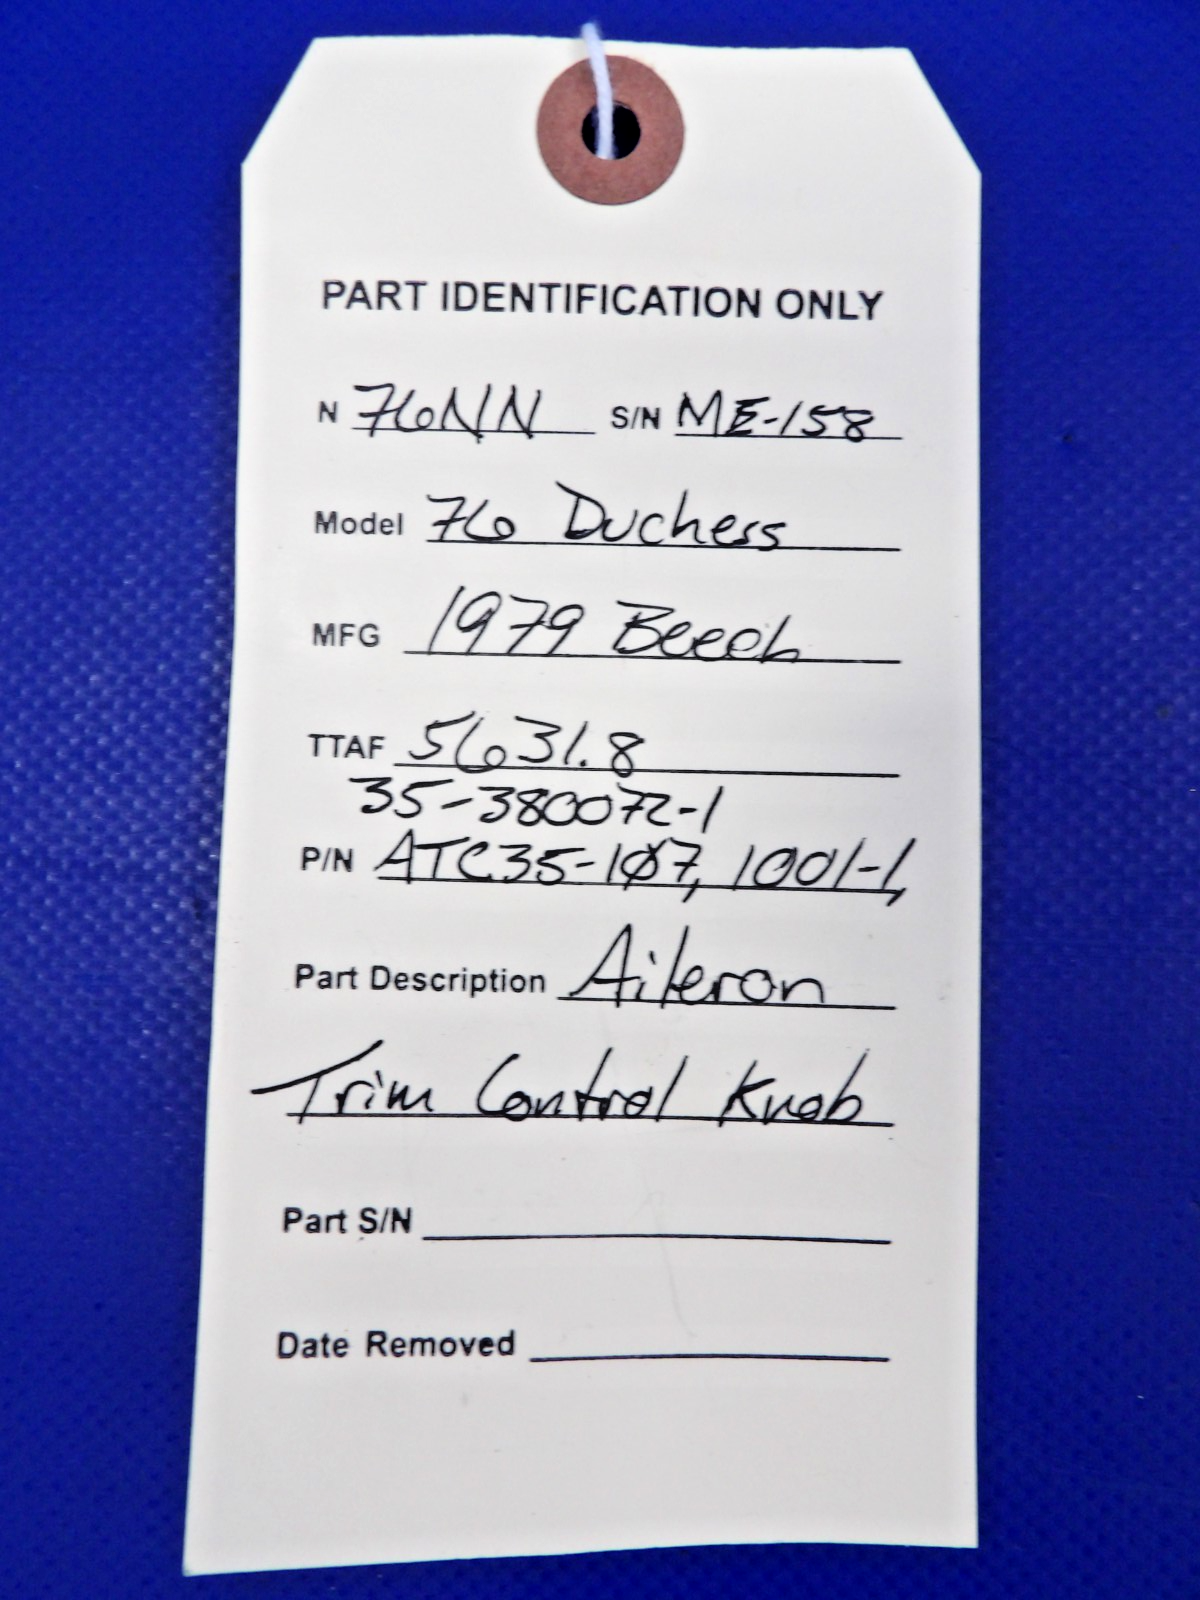 PART IDENTIFICATION ONLY
N 76NN S/N ME-158
Model 76 Duchess
MFG 1979 Beech
TTAF 5631.8
35-380072-1
P/N ATC35-1Ø7, 1001-1,
Part Description Aileron
Trim Control Knob
Part S/N
Date Removed